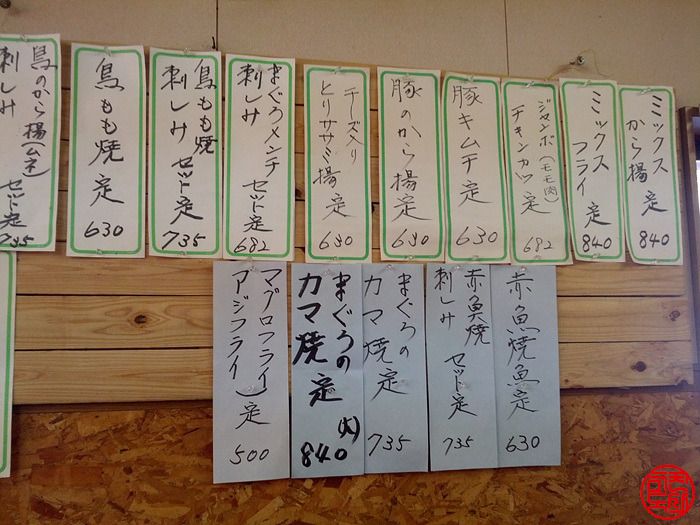 ミックス
から揚 定
840
ミックス
フライ 定
840
ジャンボ(モモ肉)
チキンカツ 定
682
豚キムチ定
630
豚のから揚定
630
チーズ入り
とりササミ揚 定
630
まぐろメンチ
刺しみ セット定
682
鳥もも焼
刺しみ セット定
735
鳥もも焼 定
630
鳥のから揚(ムネ)
刺しみ セット定
735
赤魚焼魚定
630
赤魚焼
刺しみ セット定
735
まぐろの
カマ焼 定
735
まぐろの
カマ焼 定
(大)
840
マグロフライ
アジフライ 定
500